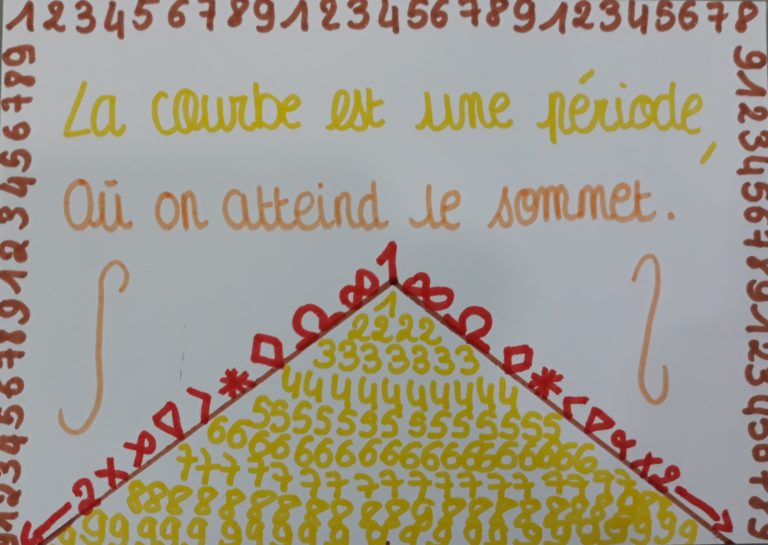 12345678912345678912345678
La courbe est une période,
Où on atteind le sommet.
1
1
2222
3333333
44444444444
555555555555555
6666666666666666666
77777777777777777
8888888888888888888
9999999999999999999
9123456789123456789
9123456789123456789